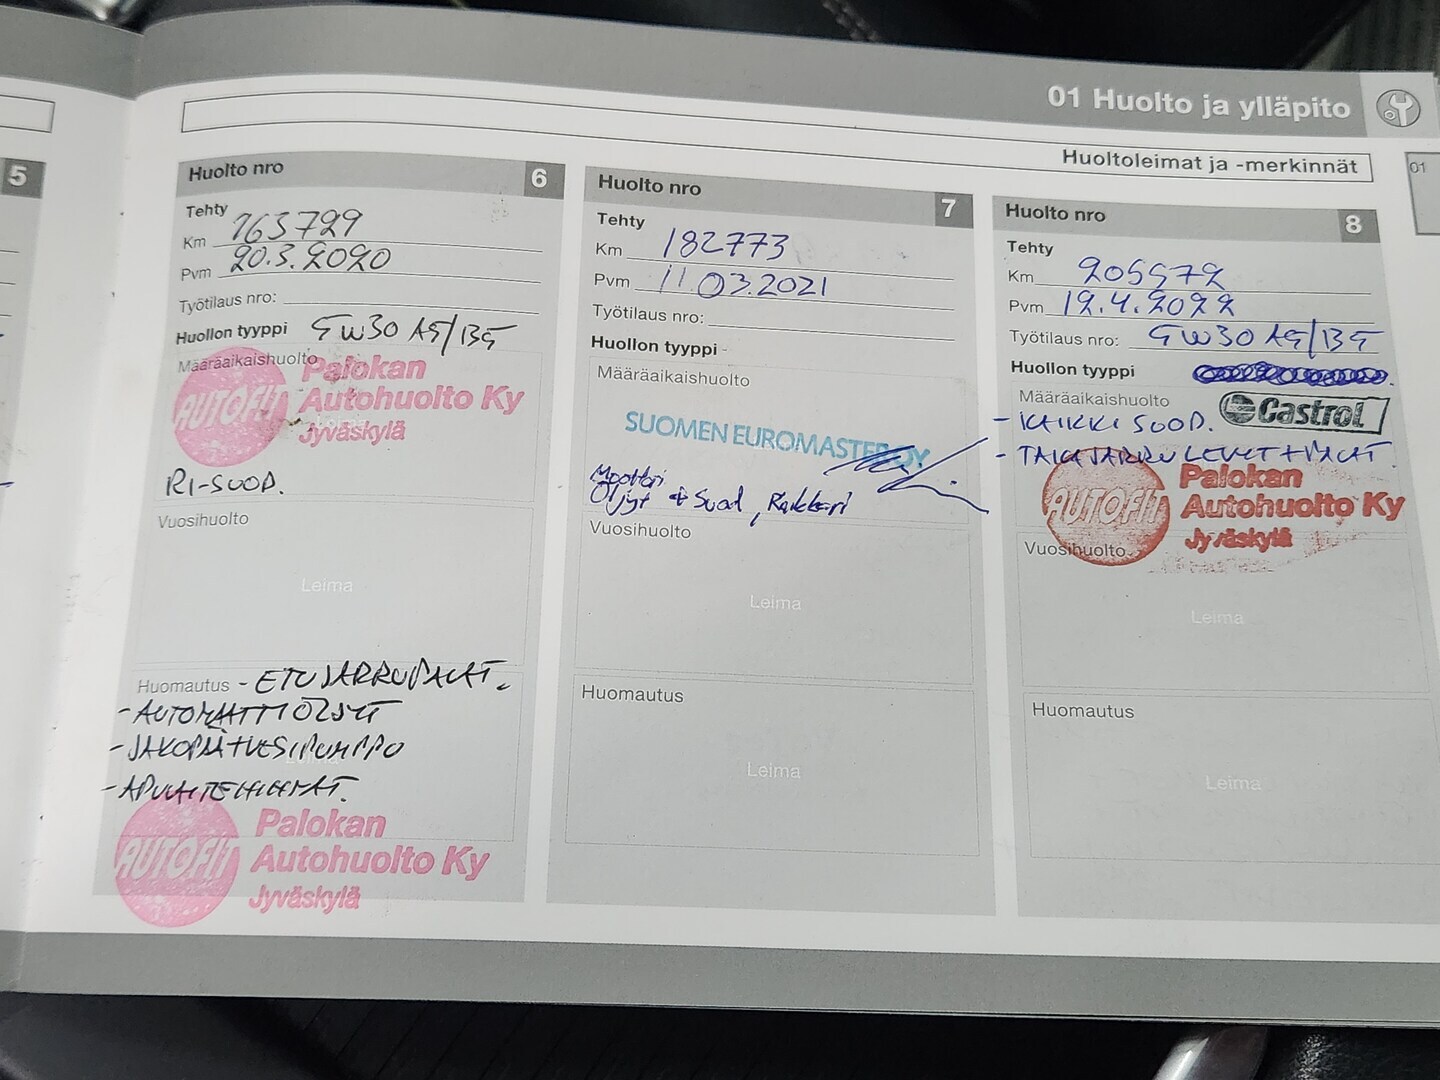 01 Huolto ja ylläpito
Huoltoleimat ja -merkinnät
01
5
Huolto nro 6
Tehty
Km 163729
Pvm 20.3.2020
Työtilaus nro:
Huollon tyyppi 5W30 A5/B5
Määräaikaishuolto
AUTOFIT
Palokan
Autohuolto Ky
Jyväskylä
RI-SUOD.
Vuosihuolto
Leima
Huomautus - ETUJARRUPALAT.
- AUTOMAATTIÖLJYT
- JAKOPÄÄ+VESIPUMPPO
- APULAITEHIHNAT.
AUTOFIT
Palokan
Autohuolto Ky
Jyväskylä
Huolto nro 7
Tehty
Km 182773
Pvm 11.03.2021
Työtilaus nro:
Huollon tyyppi -
Määräaikaishuolto
SUOMEN EUROMASTER OY
Moottori
Öljyt + Suod, Rakkari
Vuosihuolto
Leima
Huomautus
Leima
Huolto nro 8
Tehty
Km 205972
Pvm 19.4.2022
Työtilaus nro: 5W30 A5/B5
Huollon tyyppi
Määräaikaishuolto
Castrol
- KAIKKI SUOD.
- TAKAJARRULEVYT+PALAT.
AUTOFIT
Palokan
Autohuolto Ky
Jyväskylä
Vuosihuolto
Leima
Huomautus
Leima